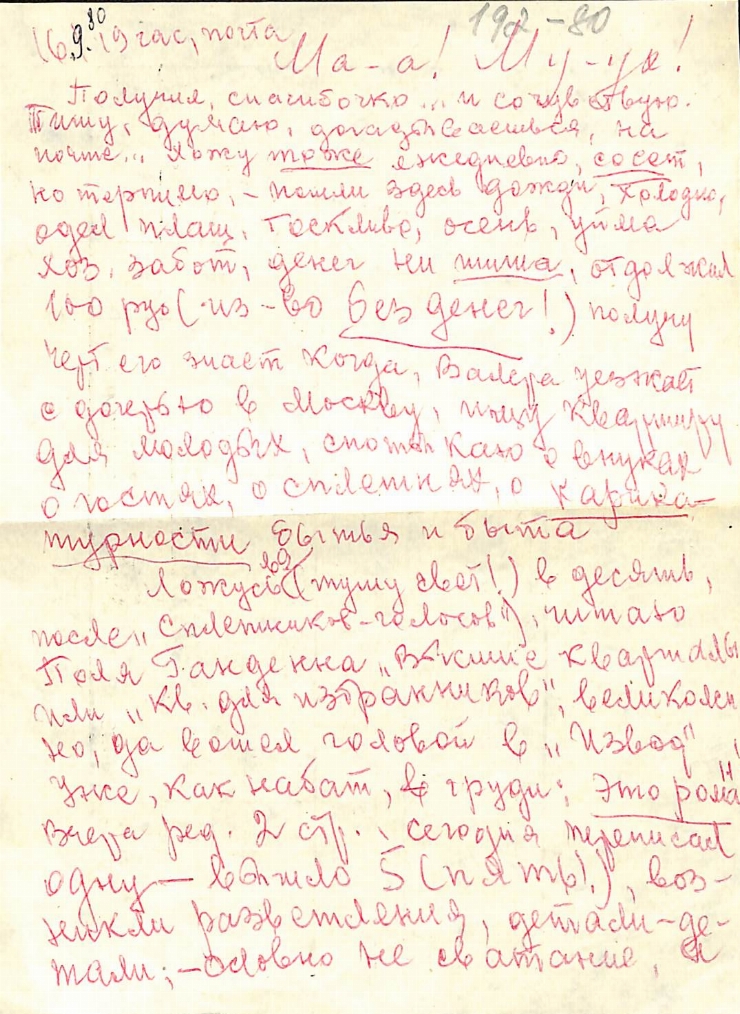 16.9.80 19 час, почта
192-80
Ма-а! Му-ук!
Получил, спасибочко... и сочувствую.
Пишу, думаю, догадываешься, на
почте... Хожу тоже ежедневно, сосет,
но терпимо, – пошли здесь дожди, холодно,
одел плащ, тоскливо, осень, уйма
хоз. забот, денег ни шиша, отдолжил
100 руб (из-во без денег!) получу
черт его знает когда, Валера уезжает
с дочерью в Москву, ищу квартиру
для молодых, спотыкаю о внуках
о гостях, о сплетнях, о карика-
турности бытья и быта
Ложусь (тушу свет!) в десять,
после „сплетников-голосов"), читаю
Поля Гаденна „Высшие кварталы
или „Кв. для избранников", великолеп
но, да вошел головой в „Извод",
уже, как набат, в груди: это роман
вчера ред. 2 стр., сегодня переписал
одну – вышло 5 (пять!), воз-
никли разветвления, детали-де-
тали; – словно не сватание, а